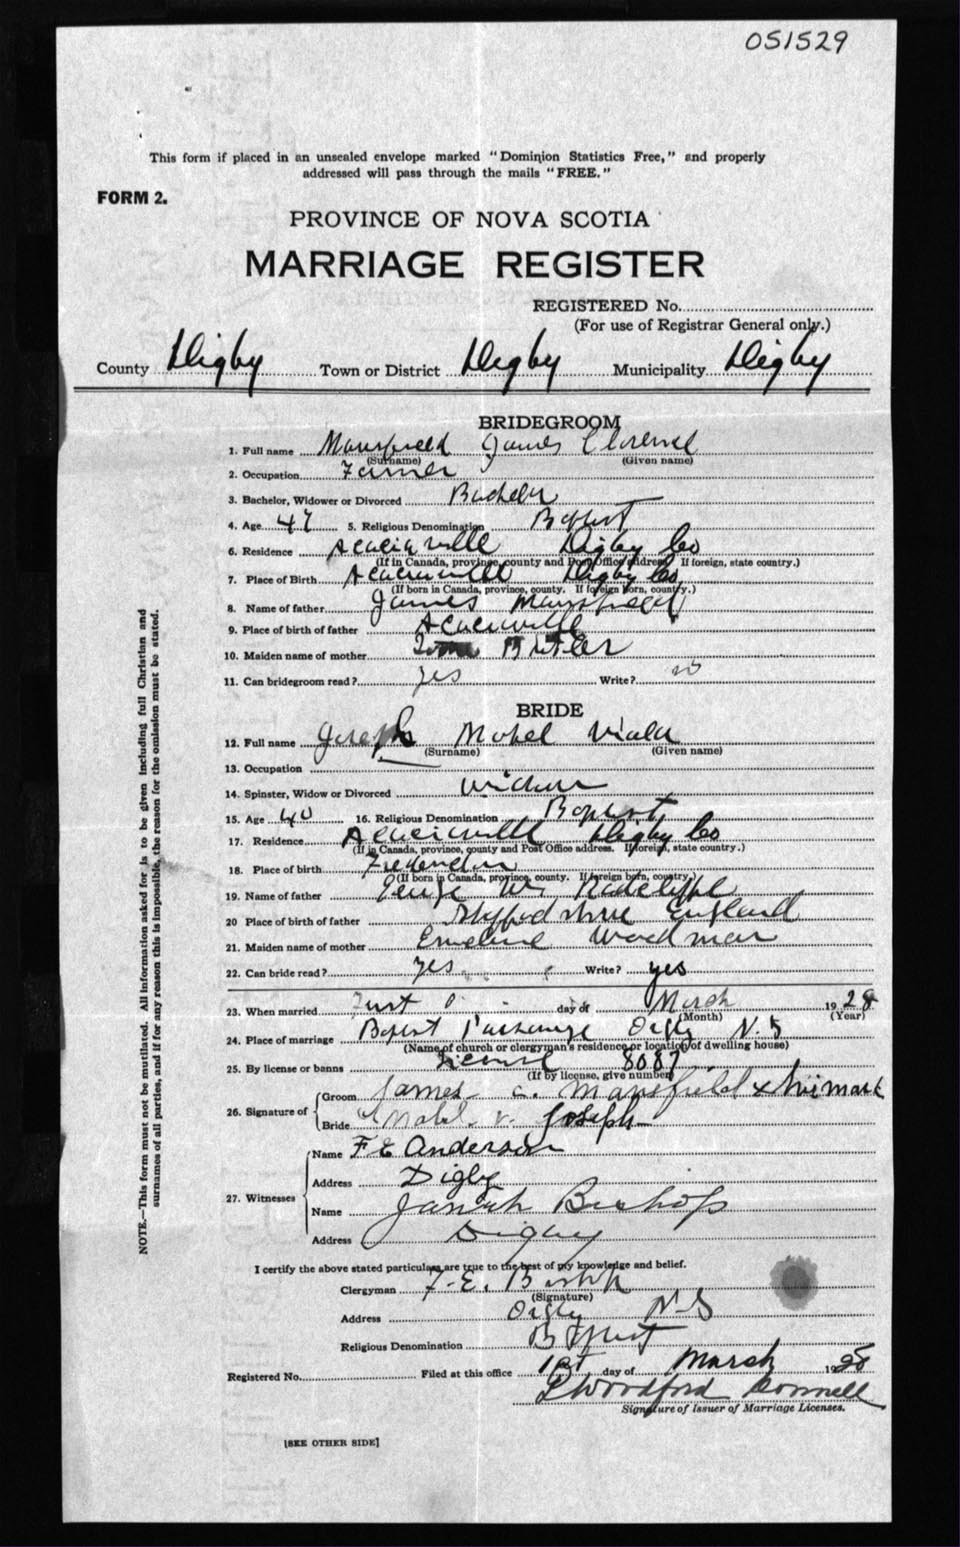 051529
This form if placed in an unsealed envelope marked "Dominion Statistics Free," and properly
addressed will pass through the mails "FREE."
FORM 2.
PROVINCE OF NOVA SCOTIA
MARRIAGE REGISTER
REGISTERED No.
(For use of Registrar General only.)
County Digby Town or District Digby Municipality Digby
BRIDEGROOM
1. Full name Mansfield James Clarence
(Surname) (Given name)
2. Occupation Farmer
3. Bachelor, Widower or Divorced Bachelor
4. Age 47 5. Religious Denomination Baptist
6. Residence Acaciaville Digby Co
(If in Canada, province, county and Post Office address. If foreign, state country.)
7. Place of Birth Acaciaville Digby Co
(If born in Canada, province, county. If foreign born, country.)
8. Name of father James Mansfield
9. Place of birth of father Acaciaville
10. Maiden name of mother Butler
11. Can bridegroom read? yes Write? no
BRIDE
12. Full name Joseph Mabel Viola
(Surname) (Given name)
13. Occupation
14. Spinster, Widow or Divorced widow
15. Age 40 16. Religious Denomination Baptist
17. Residence Acaciaville Digby Co
(If in Canada, province, county and Post Office address. If foreign, state country.)
18. Place of birth Fredericton
(If born in Canada, province, county. If foreign born, country.)
19. Name of father George Wm Radcliffe
20 Place of birth of father England
21. Maiden name of mother Emeline Woodman
22. Can bride read? yes Write? yes
23. When married First day of March 1928
(Month) (Year)
24. Place of marriage Baptist Parsonage Digby N.S
(Name of church or clergyman's residence or location of dwelling house)
25. By license or banns License 8087
(If by license, give number)
26. Signature of Groom James C. Mansfield x his mark
Bride Mabel V. Joseph
27. Witnesses Name F E Anderson
Address Digby
Name Bishop
Address Digby
I certify the above stated particulars are true to the best of my knowledge and belief.
Clergyman F. E. Bishop
(Signature)
Address Digby N-S
Religious Denomination Baptist
Registered No. Filed at this office 1st day of March 1928
Woodford Connell
Signature of Issuer of Marriage Licenses.
[SEE OTHER SIDE]
NOTE.—This form must not be mutilated. All information asked for is to be given including full Christian and
surnames of all parties, and if for any reason this is impossible, the reason for the omission must be stated.